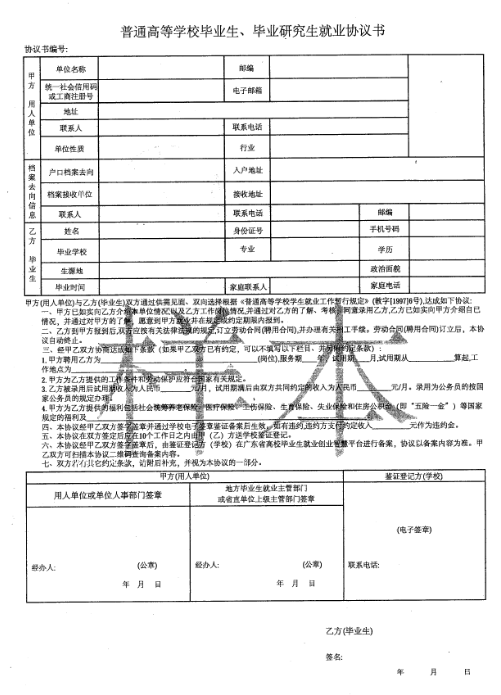 普通高等学校毕业生、毕业研究生就业协议书
协议书编号:
甲方 用人单位
单位名称 邮编
统一社会信用码或工商注册号 电子邮箱
地址
联系人 联系电话
单位性质 行业
档案去向信息
户口档案去向 入户地址
档案接收单位 接收地址
联系人 联系电话 邮编
乙方 毕业生
姓名 身份证号 手机号码
毕业学校 专业 学历
生源地 政治面貌
毕业时间 家庭联系人 家庭电话
甲方(用人单位)与乙方(毕业生)双方通过供需见面、双向选择根据《普通高等学校学生就业工作暂行规定》(教学[1997]6号),达成如下协议:
一、甲方已如实向乙方介绍本单位情况以及乙方工作岗位情况,并通过对乙方的了解、考核,同意录用乙方,乙方已如实向甲方介绍自己
情况,并通过对甲方的了解,愿意到甲方就业并在规定或约定期限内报到。
二、乙方到甲方报到后,双方应按有关法律法规的规定,订立劳动合同(聘用合同),并办理有关用工手续。劳动合同(聘用合同)订立后,本协
议自动终止。
三、经甲乙双方协商达成如下条款（如果甲乙双方已有约定，可以不填写以下栏目，并另附约定条款）:
1.甲方聘用乙方为 (岗位),服务期 年,试用期 月,试用期从 算起,工
作地点为
2.甲方为乙方提供的工作条件和劳动保护应符合国家有关规定。
3.乙方被录用后试用期收入为人民币 元/月，试用期满后由双方共同约定的收入为人民币 元/月。录用为公务员的按国
家公务员的规定办理。
4.甲方为乙方提供的福利包括社会统筹养老保险、医疗保险、工伤保险、生育保险、失业保险和住房公积金（即“五险一金”）等国家
规定的福利及
四、本协议经甲乙双方签字盖章并通过学校电子签章鉴证备案后生效。如有违约,违约方支付约定收入 元作为违约金。
五、本协议在双方签定后应在10个工作日之内由甲（乙）方送学校鉴证登记。
六、本协议经甲乙双方签字盖章后、由鉴证登记方（学校）在广东省高校毕业生就业创业智慧平台进行备案，协议以备案内容为准。甲
乙双方可扫描本协议二维码查询备案内容。
七、双方若有其它约定条款，请附后补充，并视为本协议的一部分。
样本
甲方(用人单位) 鉴证登记方(学校)
用人单位或单位人事部门签章
地方毕业生就业主管部门
或省直单位上级主管部门签章
(电子签章)
经办人: (公章) 经办人: (公章) 联系电话:
年 月 日 年 月 日
乙方(毕业生)
签名:
年 月 日